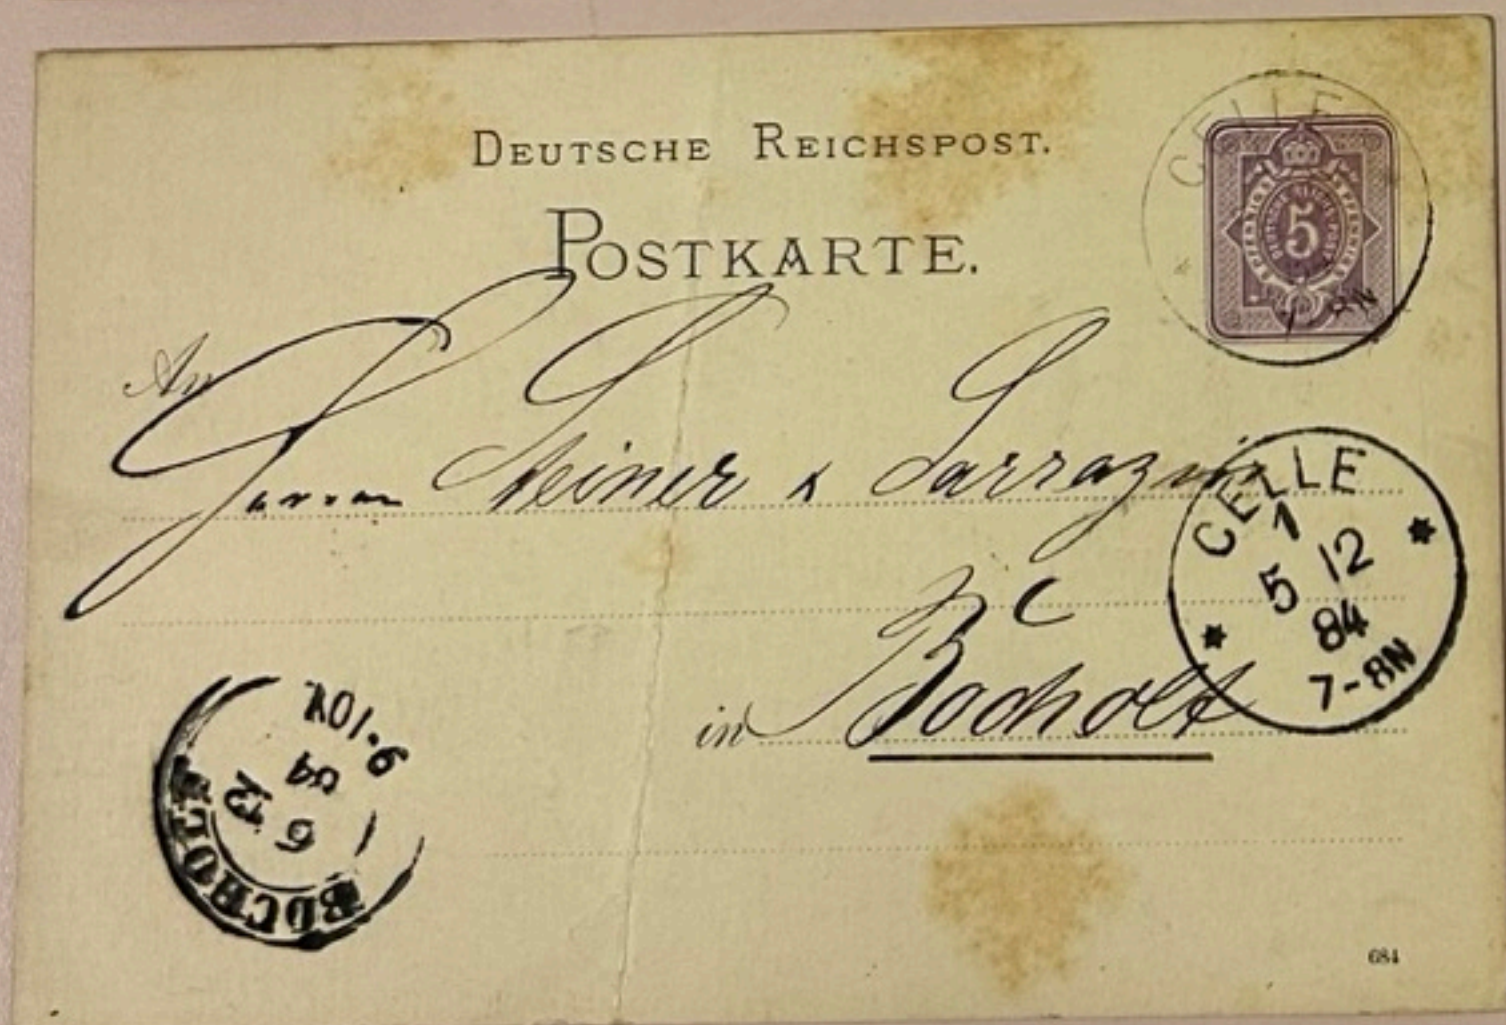 DEUTSCHE REICHSPOST.
POSTKARTE.
CELLE
5 PFENNIG
DEUTSCHE REICHS-POST
7-8N
An
Herren Steiner & Sarrazin
CELLE
1
5 12
84
7-8N
in Bocholt
BOCHOLT
6 12
84
9-10V
684